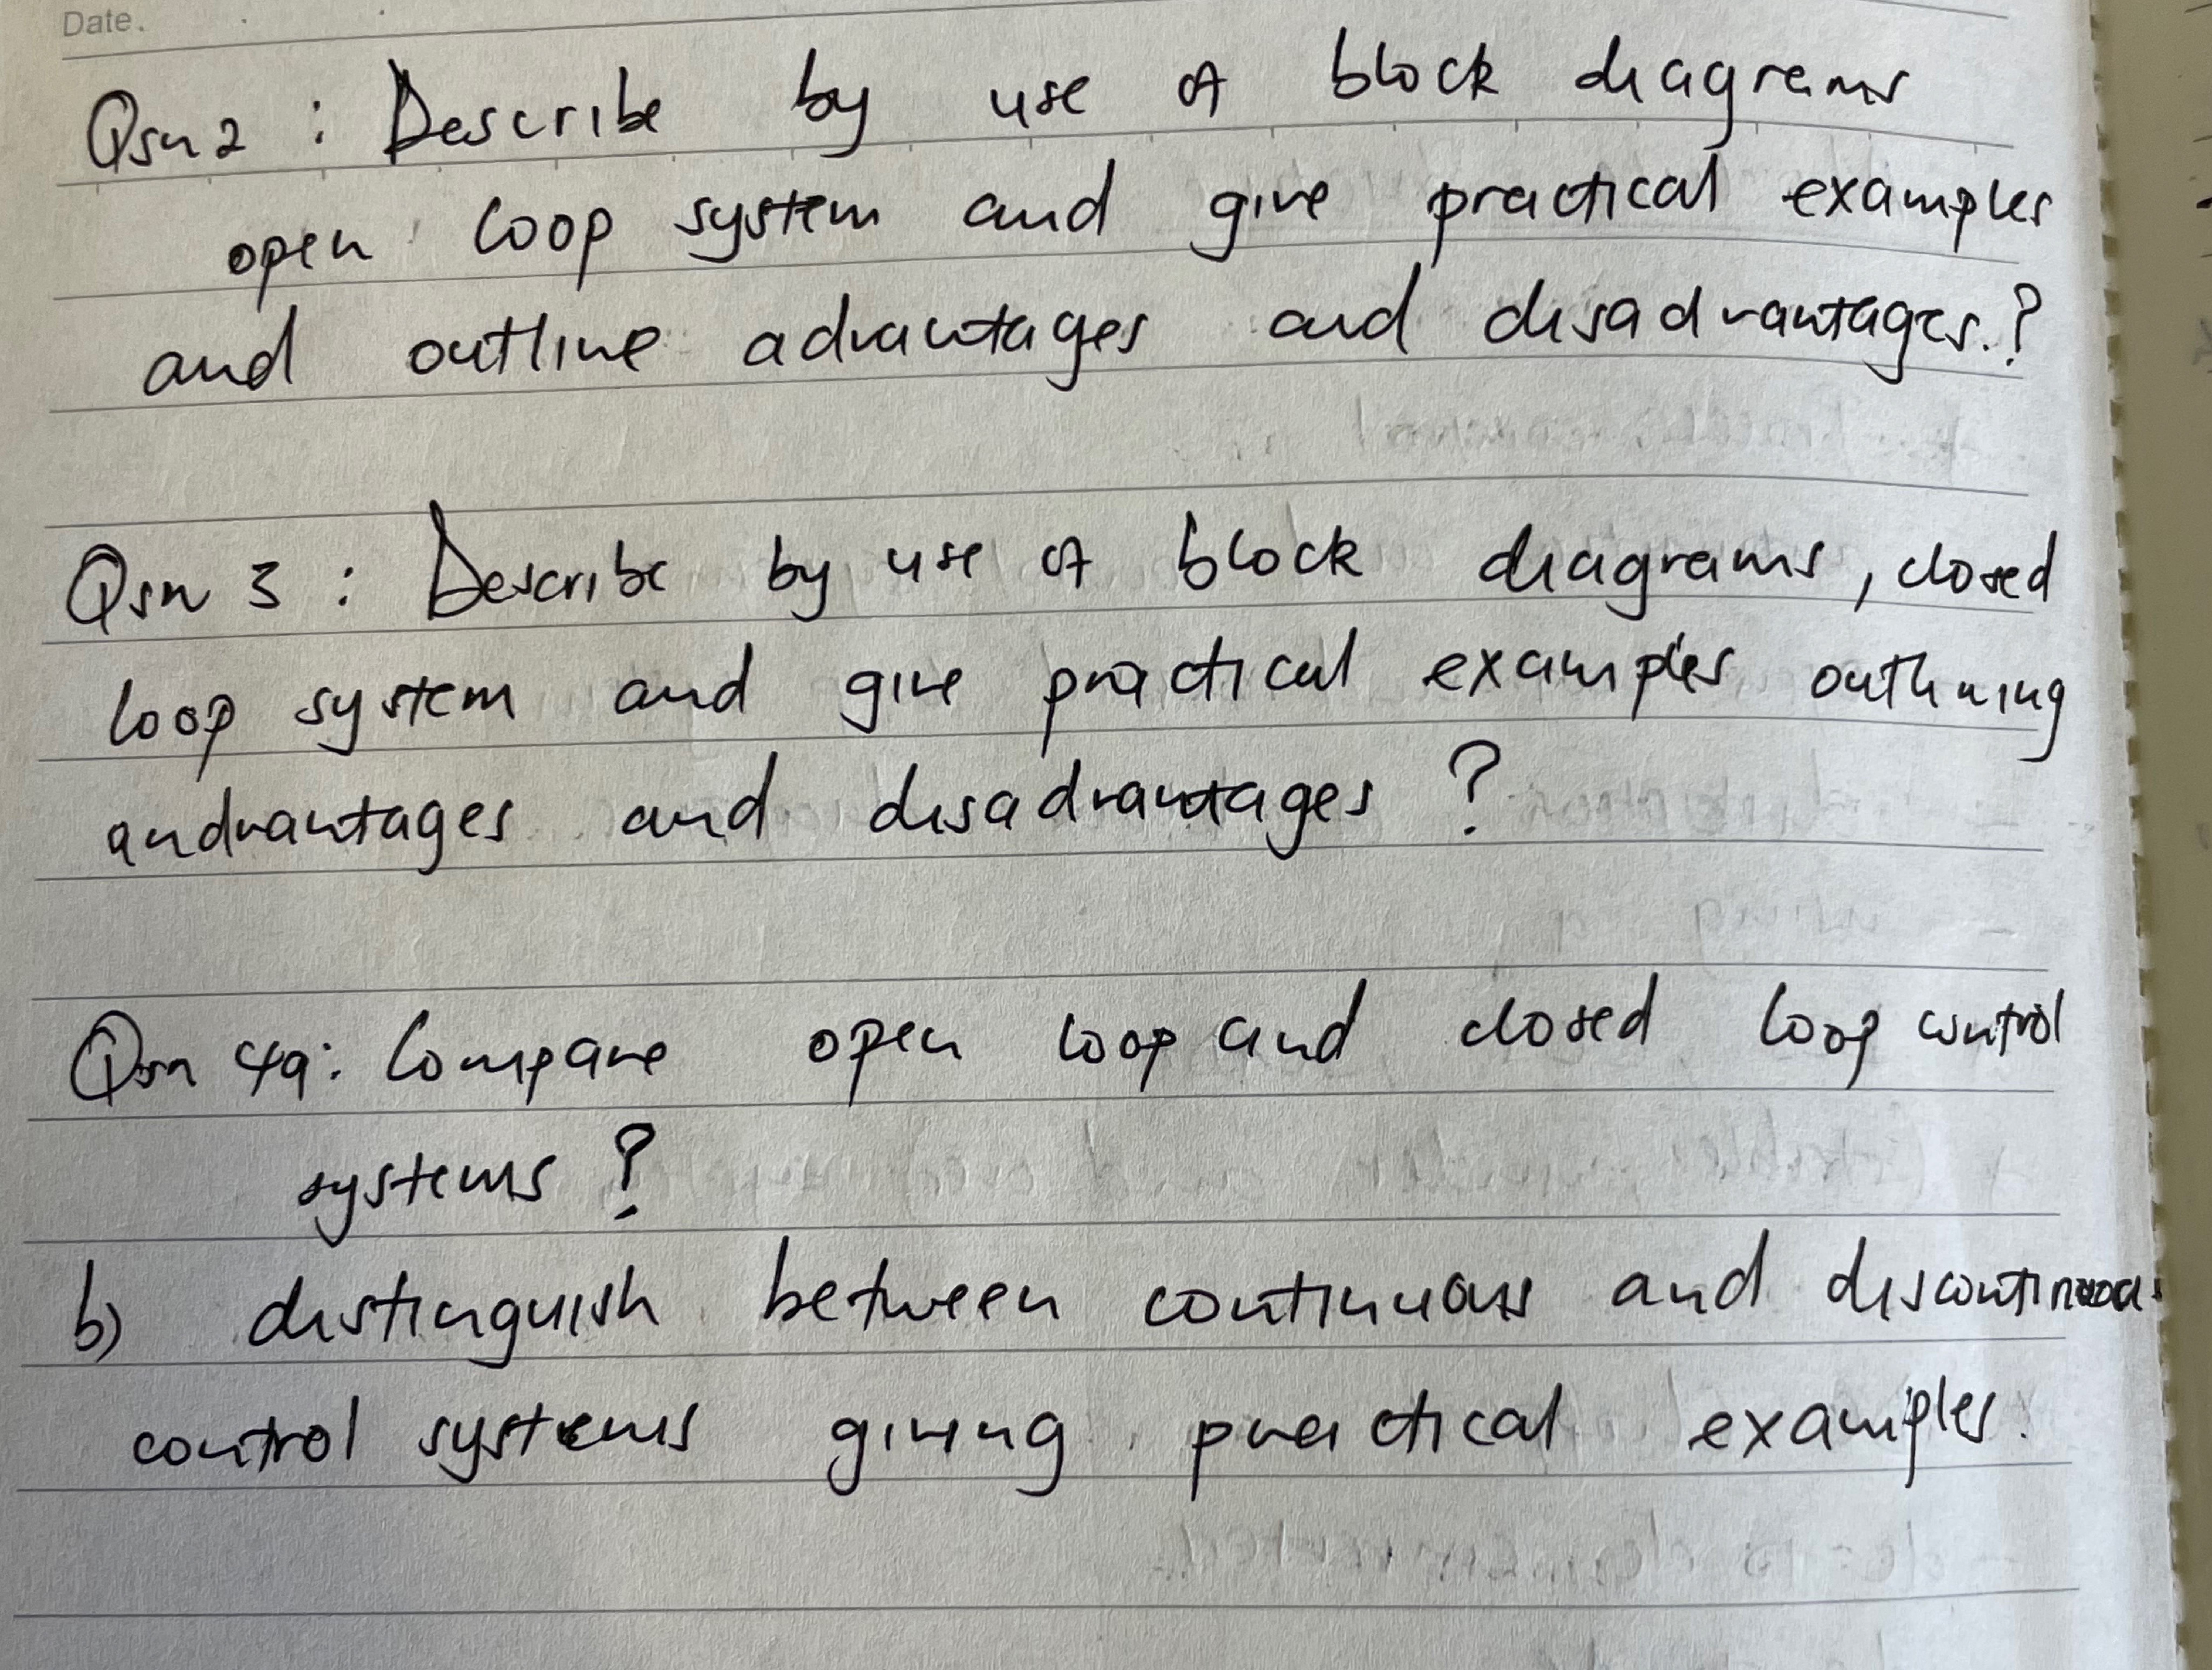 Date.
Qsn 2 : Describe by use of block diagrams
open loop system and give practical examples
and outline advantages and disadvantages.?
Qsn 3 : Describe by use of block diagrams, closed
loop system and give practical examples outlining
andvantages and disadvantages ?
Qsn 4a: Compare open loop and closed loop control
systems ?
b) distinguish between continuous and
control systems giving practical examples.